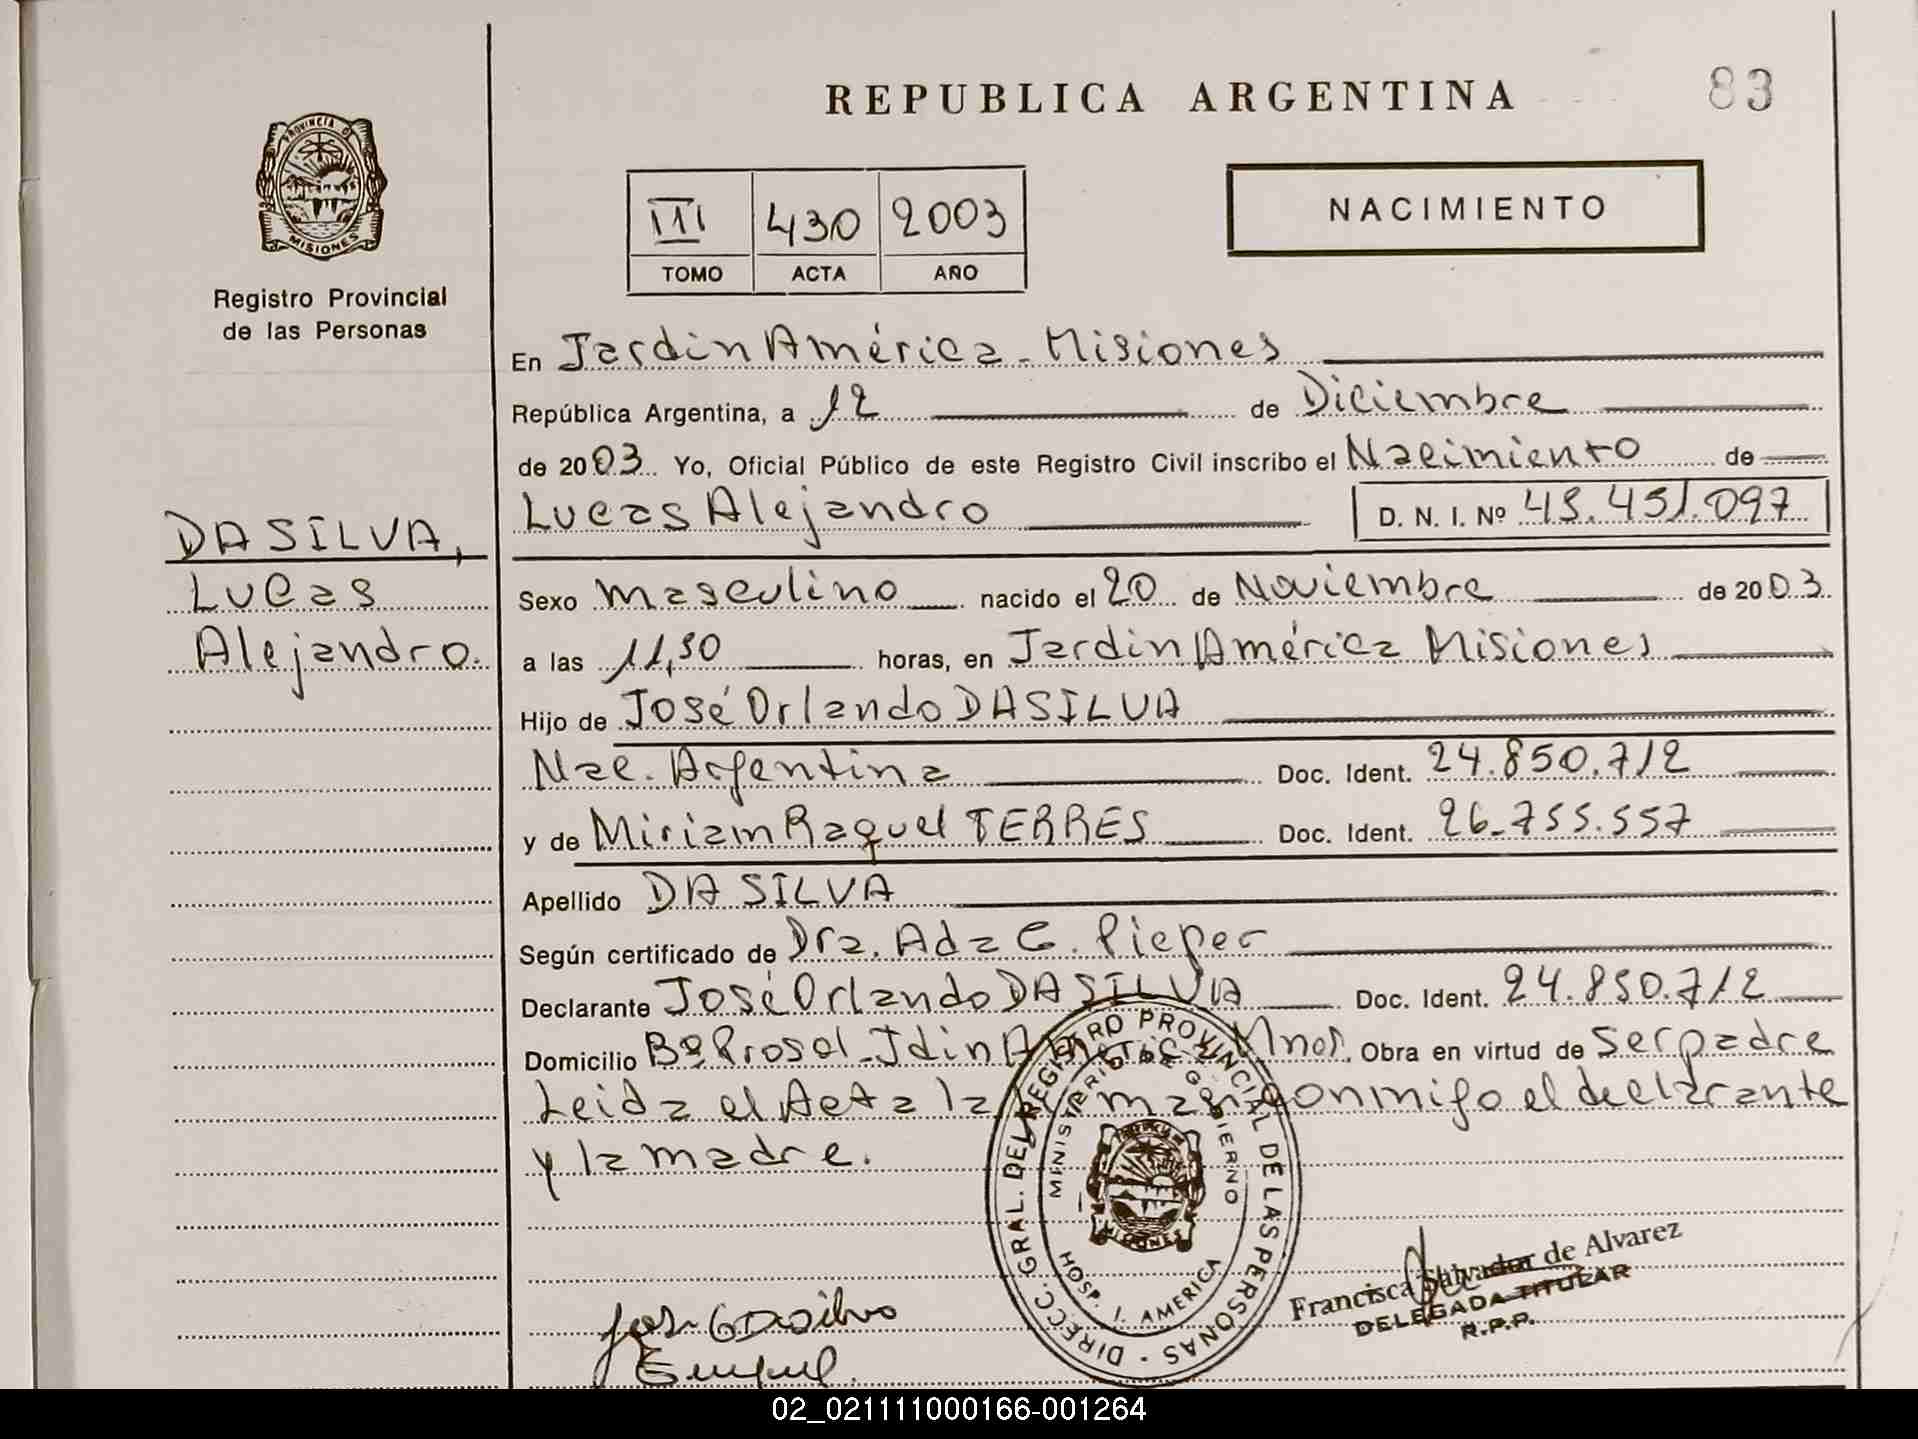 REPUBLICA ARGENTINA
83
PROVINCIA D
MISIONES
Registro Provincial
de las Personas
III 430 2003
TOMO ACTA AÑO
NACIMIENTO
En Jardin América - Misiones
República Argentina, a 12 de Diciembre
de 2003 Yo, Oficial Público de este Registro Civil inscribo el Nacimiento de
Lucas Alejandro D. N. I. Nº 45.451.097
DA SILVA,
Lucas
Alejandro.
Sexo masculino nacido el 20 de Noviembre de 2003.
a las 11,30 horas, en Jardin América Misiones
Hijo de José Orlando DA SILVA
Nac. Argentina Doc. Ident. 24.850.712
y de Miriam Raquel TERRES Doc. Ident. 26.755.557
Apellido DA SILVA
Según certificado de Dra. Ada C. Pieper
Declarante José Orlando DA SILVA Doc. Ident. 24.850.712
Domicilio Bº Rosol - Jdin América Mnes. Obra en virtud de ser padre
Leida el Acta la firman conmigo el declarante
y la madre.
DIRECC. GRAL. DEL REGISTRO PROVINCIAL DE LAS PERSONAS
MINISTERIO DE GOBIERNO
MISIONES
HOSP. J. AMERICA
Francisca Salvador de Alvarez
DELEGADA TITULAR
R.P.P.
02_021111000166-001264